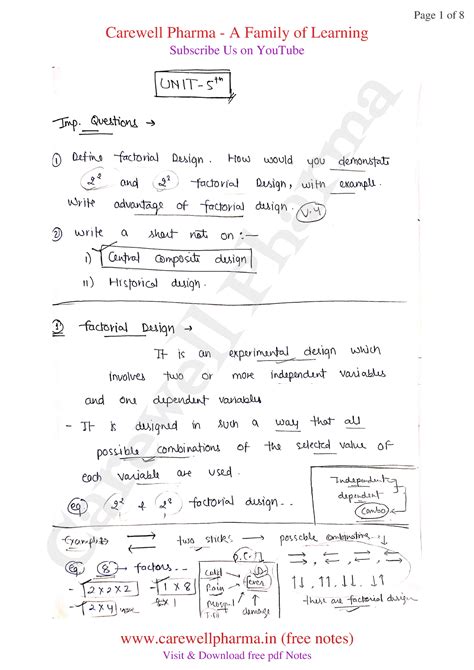 Page 1 of 8
Carewell Pharma - A Family of Learning
Subscribe Us on YouTube
UNIT-5th
Imp. Questions →
① Define factorial Design. How would you demonstate
2² and 2² factorial Design, with example.
Write advantage of factorial design. V.4
② Write a short not on :—
i) Central Composite design
ii) Historical design.
① factorial Design →
It is an experimental design which
involves two or more independent variables
and one dependent variables
- It is designed in such a way that all
possible combinations of the selected value of
each variable are used.
eg 2² & 2² factorial design..
Independent
dependent
Combo
Examples → two sticks → possible combination
eg 8 → factors..
2x2x2 - 1x8
- 2x4
8x1
Cold
Pain
fever
damage
these are factorial design
Carewell Pharma
www.carewellpharma.in (free notes)
Visit & Download free pdf Notes